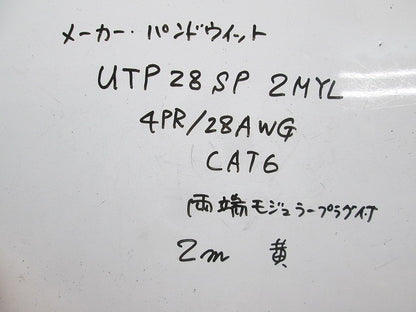 メーカー・パンドウィット
UTP28SP 2MYL
4PR/28AWG
CAT6
両端モジュラープラグ付
2m 黄